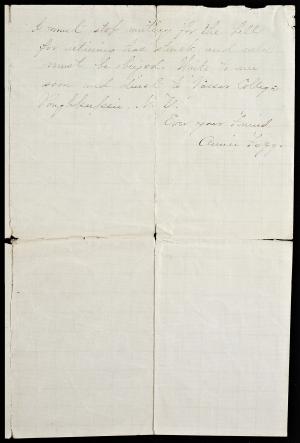 I must stop writing for the bell
for retiring has struck and rules
must be obeyed. Write to me
soon and direct to Vassar College
Poughkeepsie, N. Y.
Ever your Friend
Annie